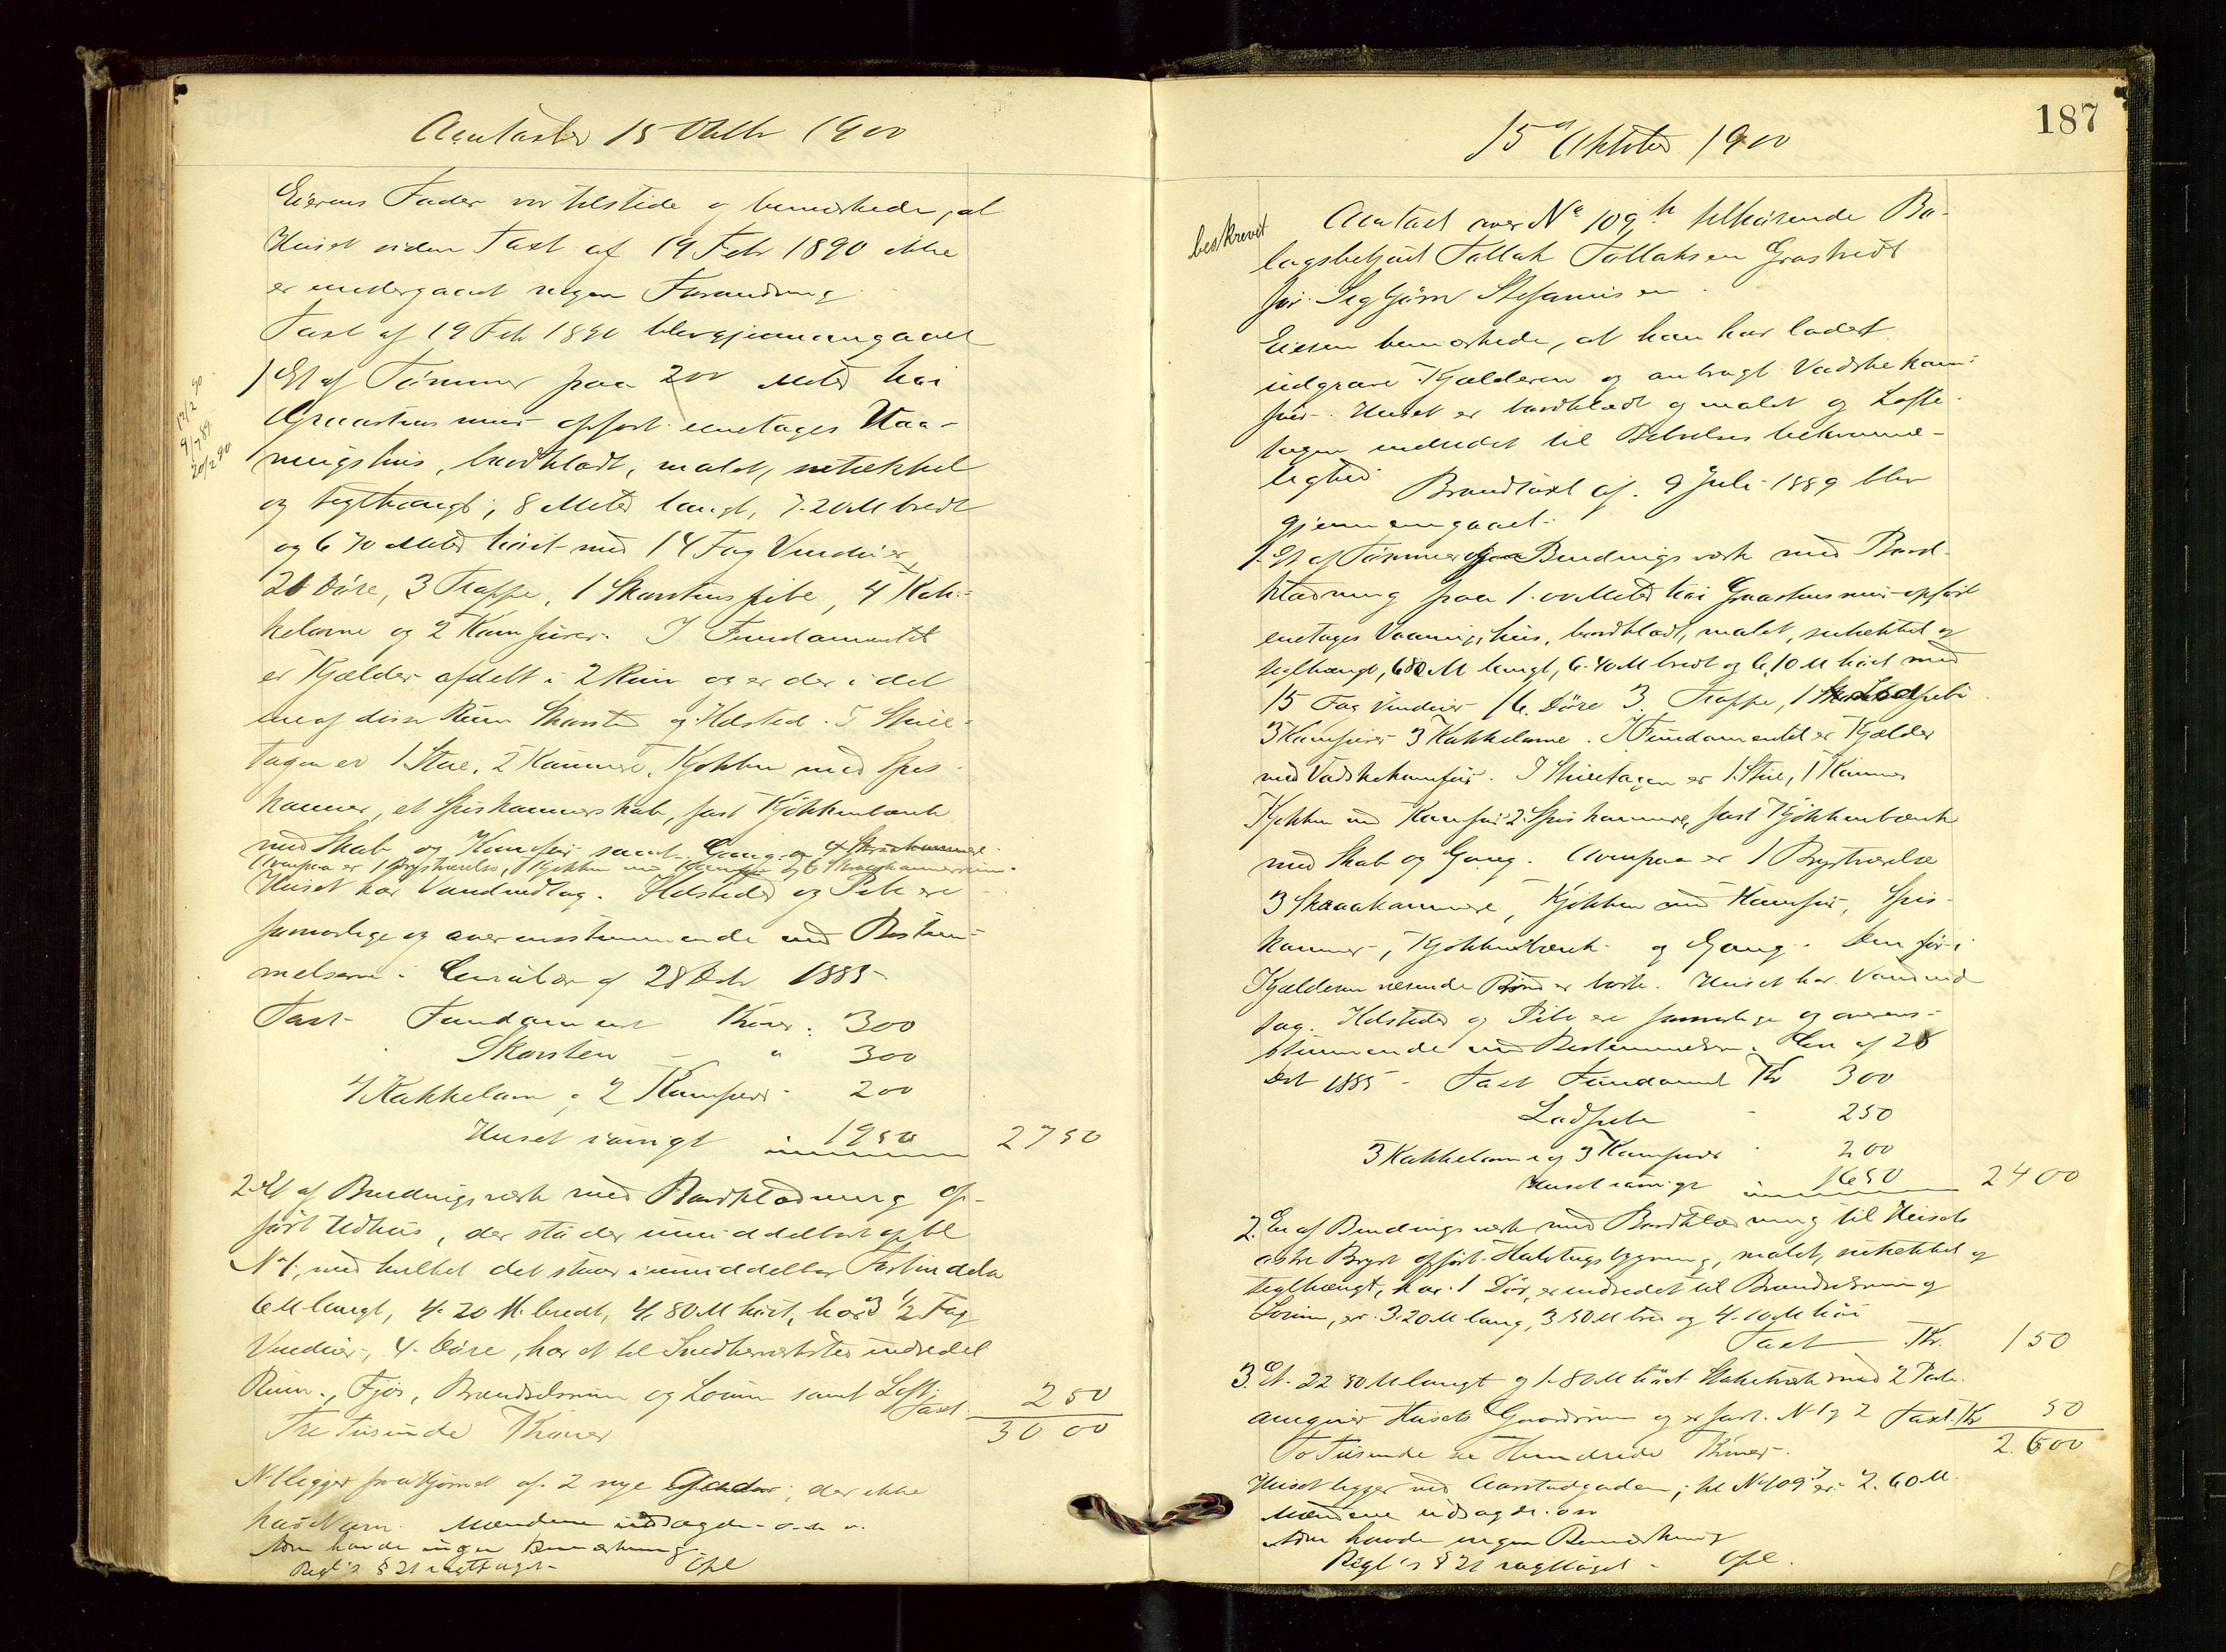 Omtaxter 15 Oktbr 1900
Eierens Fader var tilstede og bemærkede, at
Huset siden Taxt af 19 Febr 1890 ikke
er undergaaet nogen Forandring
Taxt af 19 Feb 1890 blev gjennemgaaet
19/2 90.
9/7 89.
20/2 90
1 Et af Tømmer paa 200 Meter høi
Graastensmur opført enetages Vaa-
ningshus, bordklædt, malet,
og teglhængt, 8 Meter langt, 7.20 M bredt
og 6 70 Meter høit med 14 Fag Vinduer
Døre, 3 Trappe, 1 Skorstenspibe, 4 Kak-
kelovne og 2 Komfurer. I Fundamentet
er Kjælder afdelt i 2 Rum og er der i det
ene af disse Rum Skorsten og Ildsted. I Stue-
tagen er 1 Stue, 2 Kammere, Kjøkken med Spis-
kammer, et Spiskammerskab, fast Kjøkkenbænk
med Skab og Komfur samt Gang og 4 Skraakammere.
Ovenpaa er 1 Brystværelse, 1 Kjøkken med Komfur og 6 Skraakammerrum.
Huset har Vandindlæg. Ildsteder og Pibe ere
forsvarlige og overensstemmende med Bestem-
melserne i Cirkulær af 28 Octr 1885.
Taxt Fundament Kroner. 300
Skorsten - " 300
4 Kakkelovn og 2 Komfurer 200
Huset iøvrigt 1950 2750
2. Et af Bindingsværk med Bordklædning op-
ført Udhus, der støder umiddelbart op til
N 1, med hvilket det staar i umiddelbar Forbindelse
6 M langt, 4.20 M. bredt, 4.80 M høit, har 3 1/2 Fag
Vinduer, 4 Døre, har et til Snedkerværksted indredet
Rum, Fjøs, Brændselsrum og Lorum samt Loft;
Taxt 250
Tre Tusinde Kroner 3000
N 1 ligger paa Hjørnet af 2 nye Gader, der ikke
har Navn. Mændene udsagde o.s.v.
havde ingen Bemærkning.
Regl's § 21 iagttaget

187
15de Oktober 1900
beskrevet
Omtaxt over No 109 h tilhørende Bø-
Tollak Tollaksen Grastveit
før Segbjørn Stefanusen
Eieren bemærkede, at han har ladet
udgrave Kjælderen og anbragt Vadskekom-
fur. Huset er bordklædt og malet og Lofte-
tagen indredet til Beboelses bekvemme-
lighed Brandtaxt af 9 Juli 1889 blev
gjennemgaaet.
1. Et af Tømmer og Bindingsværk med Bord-
klædning paa 1.00 Meter høi Graastensmur opført
enetages Vaaningshus, bordklædt, malet, og
teglhængt, 680 M langt, 6.40 M bredt og 6,10 M høit med
15 Fag Vinduer 16 Døre 3 Trappe, 1 Ladpibe
3 Komfurer 3 Kakkelovne. I Fundamentet er Kjælder
med Vadskekomfur. I Stuetagen er 1 Stue, 1 Kammer
Kjøkken med Komfur 2 Spiskammere, fast Kjøkkenbænk
med Skab og Gang. Ovenpaa er 1 Brystværelse
3 Skraakammere, Kjøkken med Komfur, Spis-
kammer, Kjøkkenbænk og Gang. Den før i
Kjælderen værende Brønd er borte. Huset har Vandind-
læg. Ildsteder og Pibe ere forsvarlige og overens-
stemmende med Bestemmelserne i Circ af 28
Oct 1885 - Taxt Fundament Kr 300
Ladpibe - 250
3 Kakkelovne og 3 Komfurer 200
Huset iøvrigt 1650 2400
2. En af Bindingsværk med Bordklædning til Husets
østre Bryst opført Halvtagsbygning, malet, og
teglhængt, har 1 Dør, er indredet til Brændselsrum og
Lorum, er 3.20 M lang, 3 50 M bred og 4.10 M høi
Taxt Kr. 150
3. Et 22 50 M langt og 1.80 M høit Stakitværk med 2 Porte
omgiver Husets Gaardsrum og er fast. N 1 og 2 Taxt Kr 50
To Tusende sex Hundrede Kroner. 2.600
Huset ligger ved Aarstadgaden; til No 109 er 2.60 M.
Mændene udsagde. osv
havde ingen Bemærkning
Regl's § 21 iagttaget